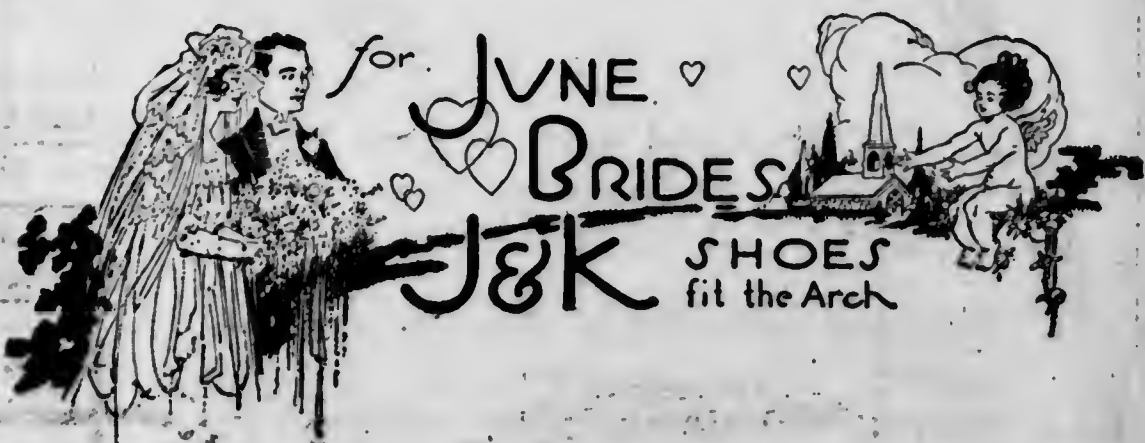 for JVNE
BRIDES
J&K SHOES
fit the Arch